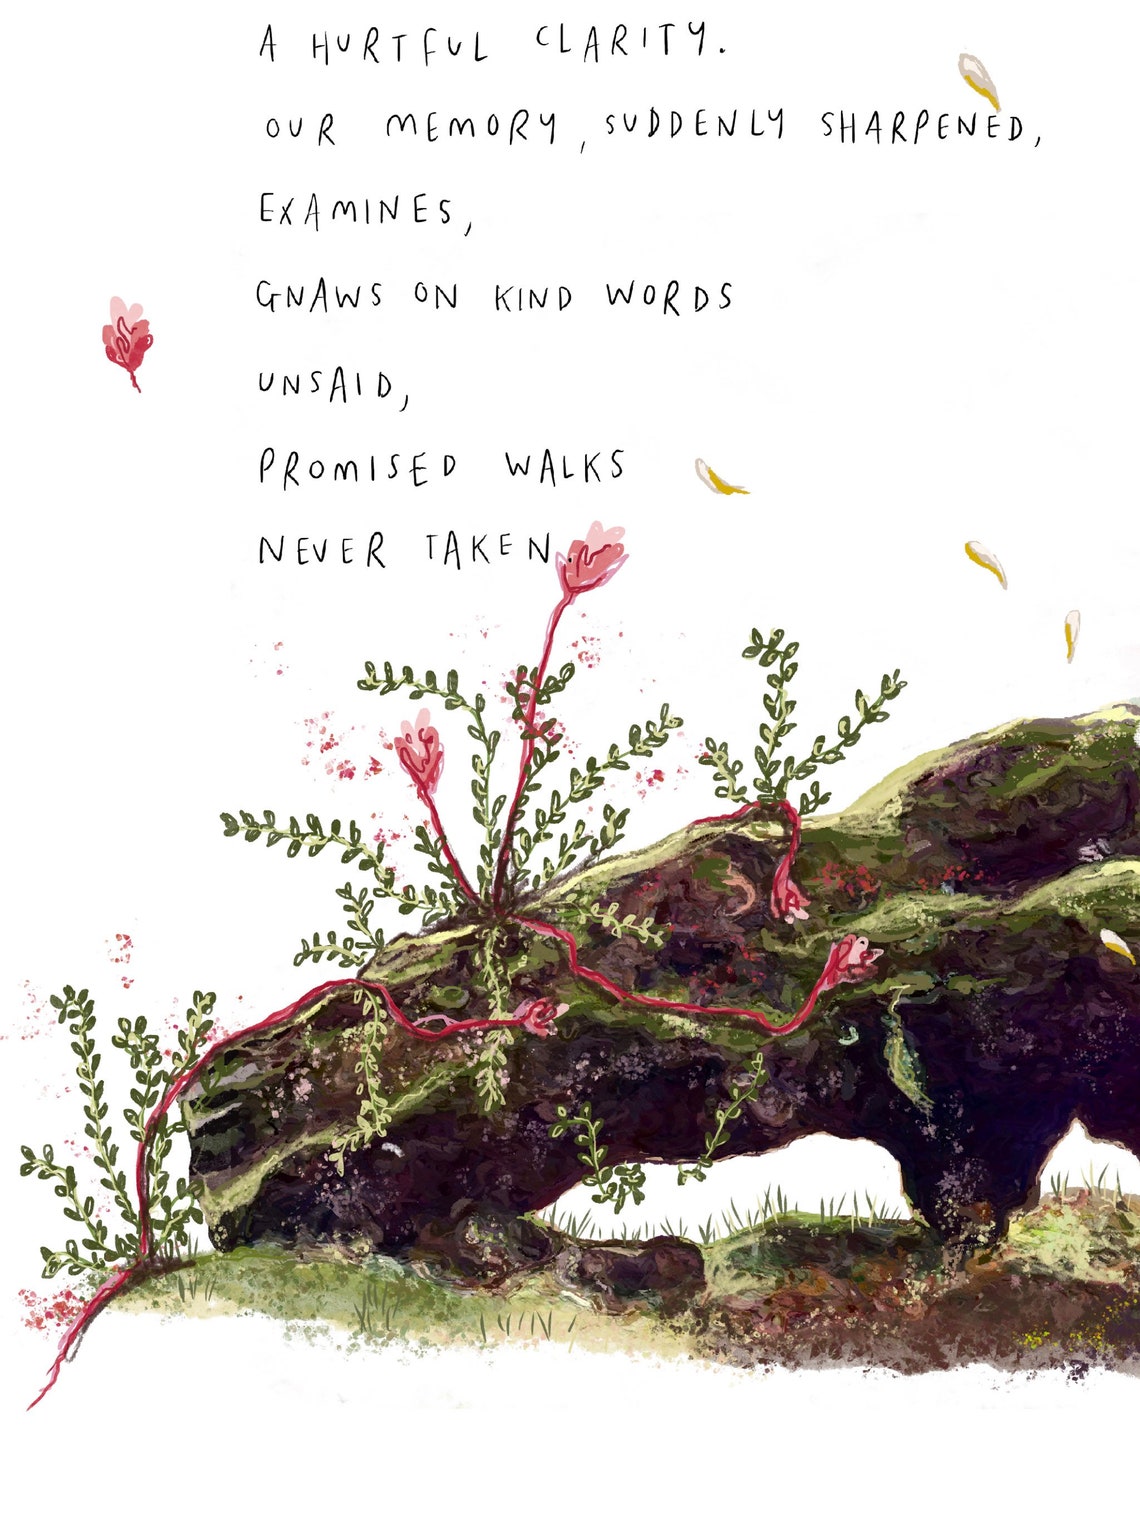 A HURTFUL CLARITY.
OUR MEMORY, SUDDENLY SHARPENED,
EXAMINES,
GNAWS ON KIND WORDS
UNSAID,
PROMISED WALKS
NEVER TAKEN